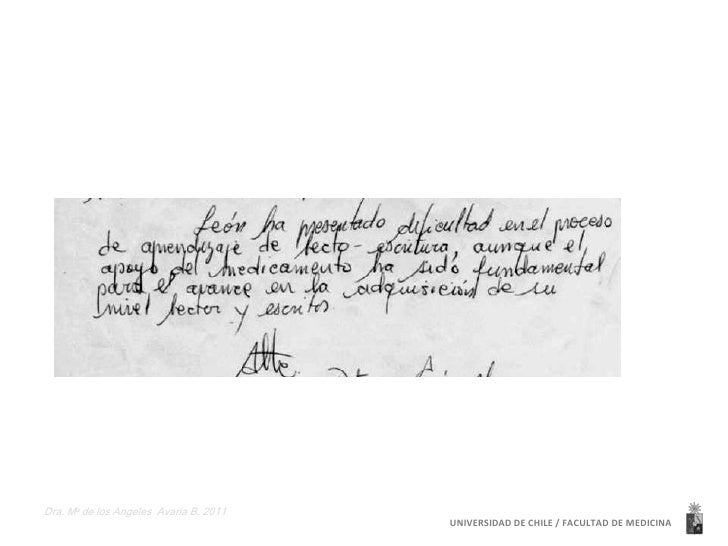 León ha presentado dificultad en el proceso
de aprendizaje de lecto-escritura, aunque el
apoyo del medicamento ha sido fundamental
para el avance en la adquisición de su
nivel lector y escritos.
Atte.
Dra. Mª de los Angeles Avaria B. 2011
UNIVERSIDAD DE CHILE / FACULTAD DE MEDICINA